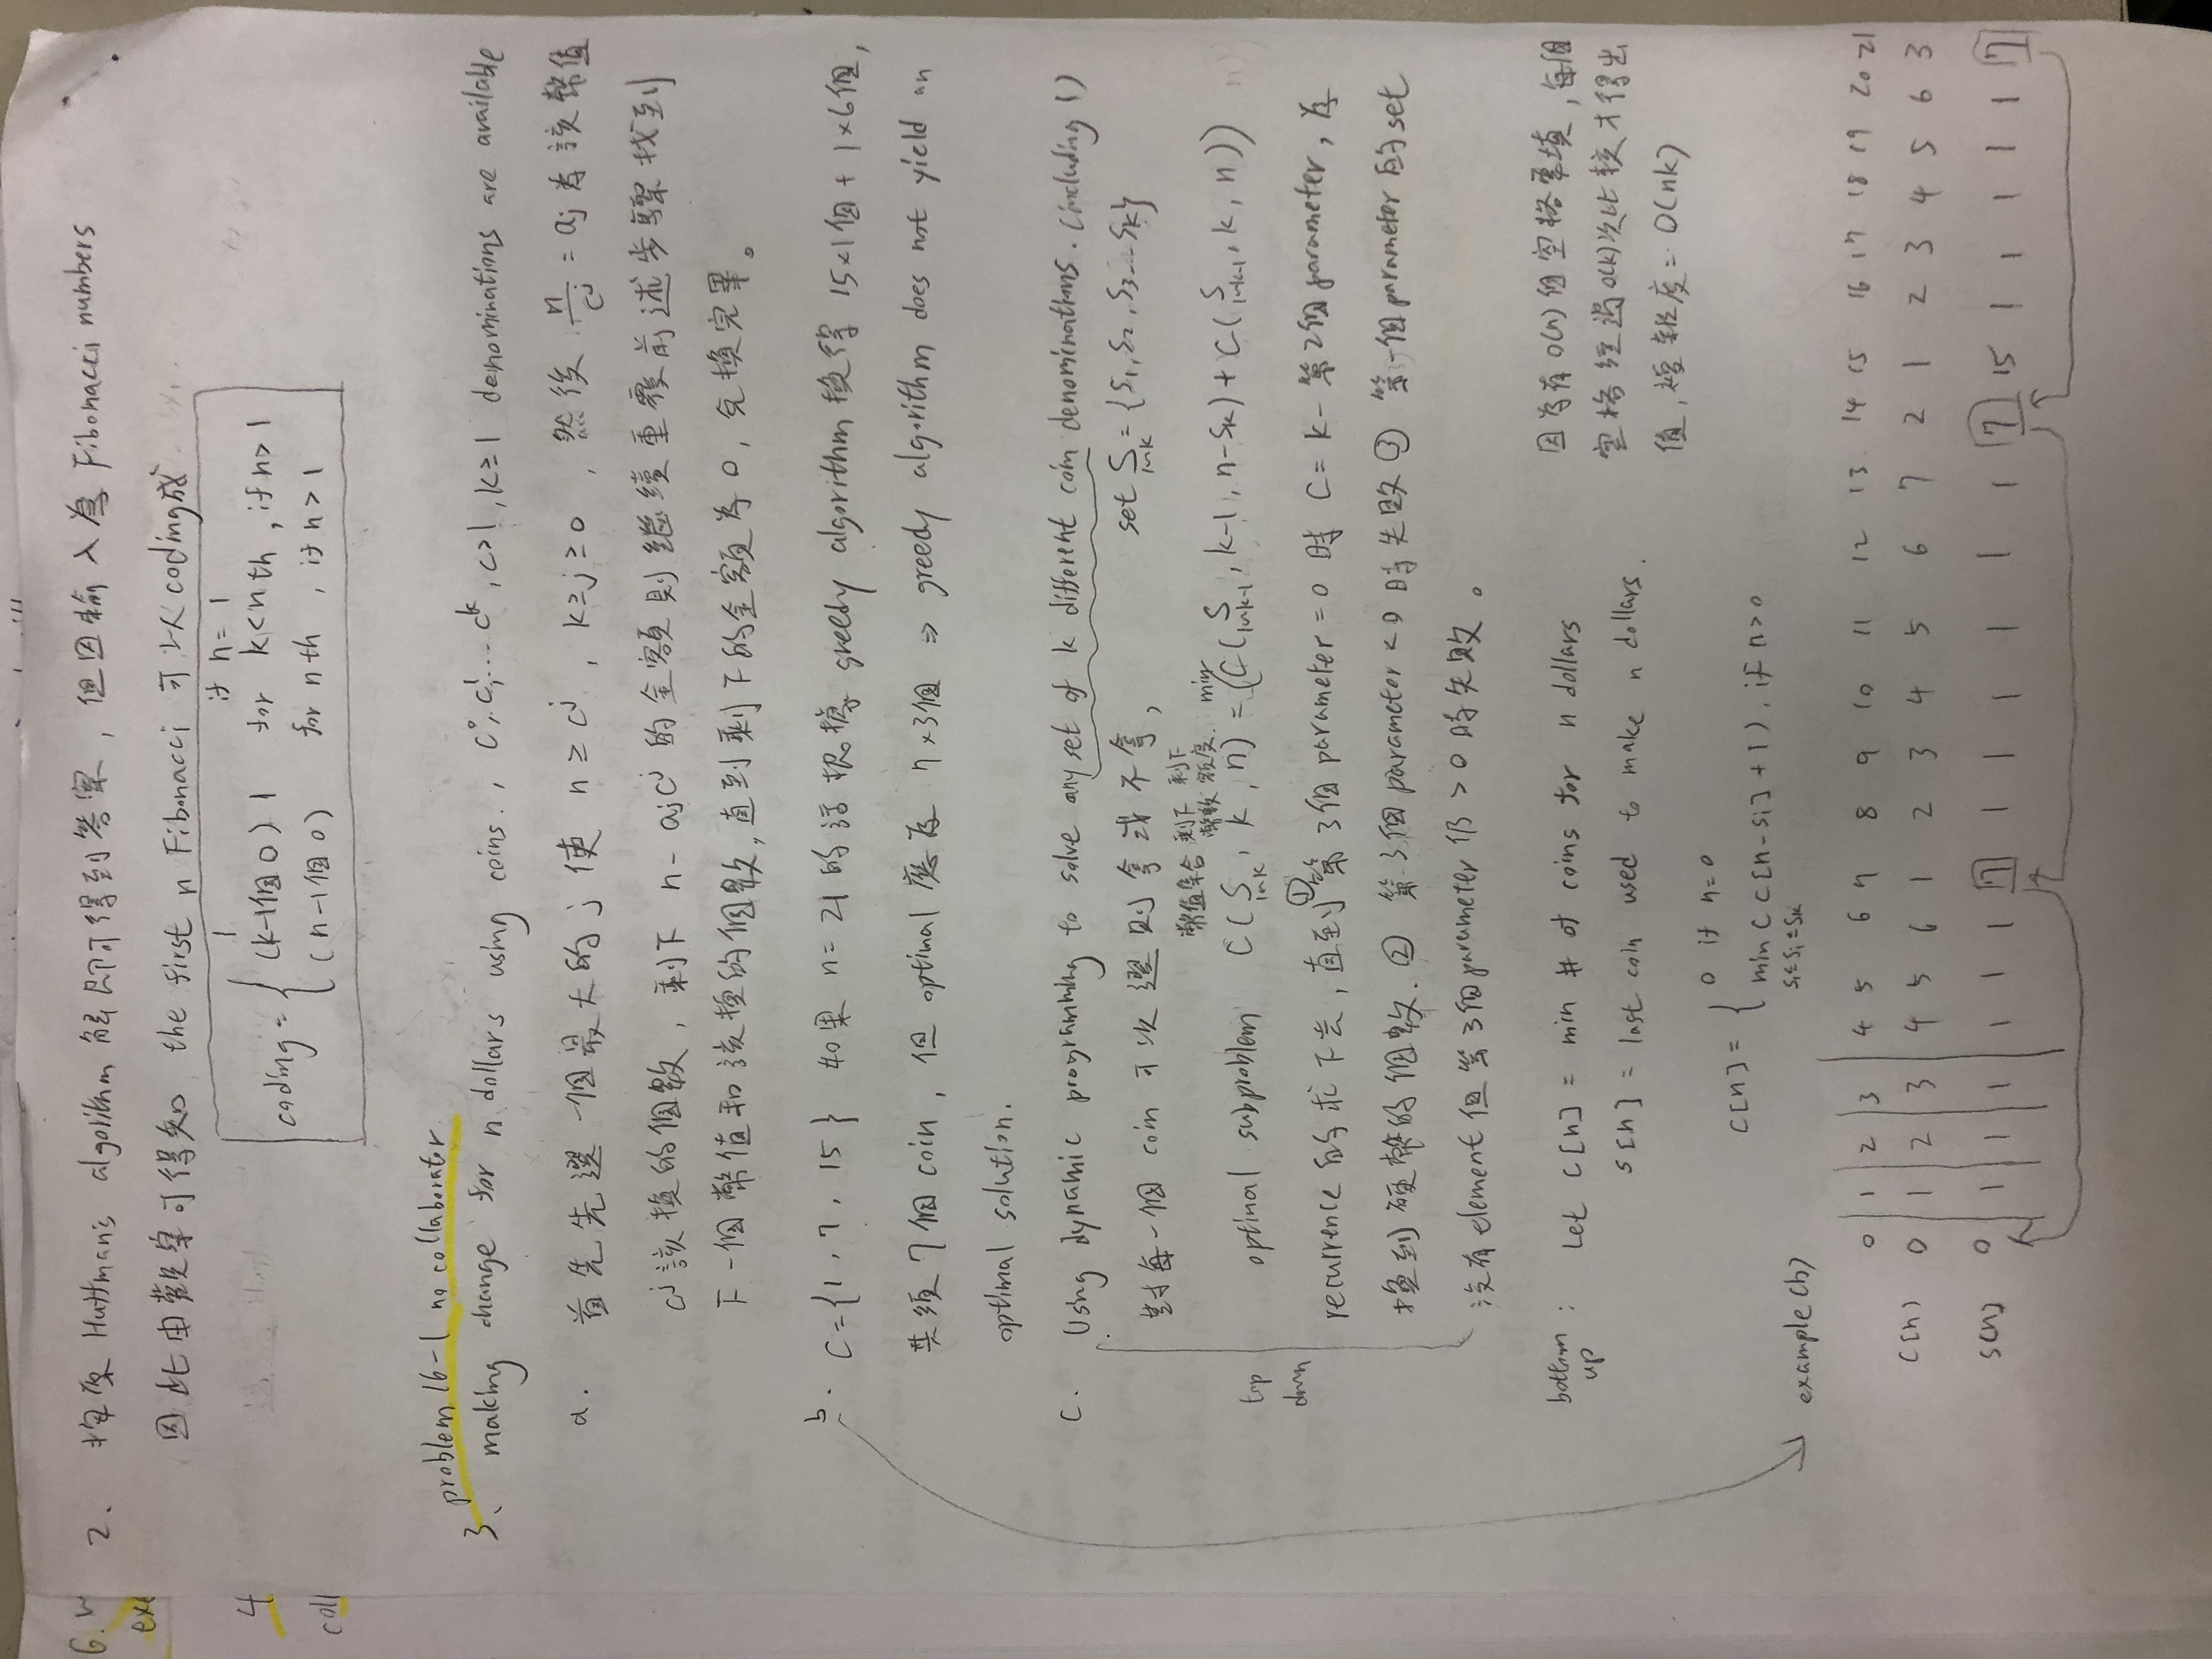 6. w
exe
4
coll
2. 按照 Huffman's algorithm 解即可得到答案，但因輸入為 Fibonacci numbers
因此由觀察可得知 the first n Fibonacci 可以 coding成
coding = { 1 if n = 1
(k-1個0) 1 for k<nth , if n>1
(n-1個0) for nth , if n>1
problem 16-1 no collaborator
3、 making change for n dollars using coins. , c⁰, c¹, ... cᵏ , c>1 , k≥1 denominations are available
a. 首先先選一個最大的 j 使 n ≥ cʲ , k≥j≥0 , 然後 n/cʲ = aj 為該幣值
cʲ 該換的個數，剩下 n - ajcʲ 的金額則繼續重覆前述步驟找到
下一個幣值和該換的個數，直到剩下的金額為 0，兌換完畢。
b. C={1, 7, 15} 如果 n=21 的話根據 greedy algorithm 換得 15×1個 + 1×6個,
共須 7個 coin，但 optimal 應為 7×3個 ⇒ greedy algorithm does not yield an
optimal solution.
c. Using dynamic programming to solve any set of k different coin denominations. (including 1)
對每一個 coin 可次選則拿或不拿，
set S1~k = {S1, S2, S3...Sk}
幣值集合 剩下幣數 剩下額度.
optimal subproblem C(S1~k, k, n) = min(C(S1~k-1, k-1, n-Sk) + C(S1~k-1, k, n))
top down
recurrence 的求下去，直到 ① 第3個 parameter = 0 時 C = k - 第2個 parameter，為
換到硬幣的個數. ② 第3個 parameter < 0 時失敗 ③ 第一個 parameter 的 set
沒有 element 但第3個 parameter 仍 > 0 時失敗。
bottom up : Let C[n] = min # of coins for n dollars
S[n] = last coin used to make n dollars.
因為有 O(n) 個空格要填，每個
空格經過 O(k)次比較才得出
值，複雜度 = O(nk)
C[n] = { 0 if n=0
min ( C[n-Si] + 1 ), if n>0
S1≤Si≤Sk
example (b)
0 1 2 3 4 5 6 7 8 9 10 11 12 13 14 15 16 17 18 19 20 21
C[n] 0 1 2 3 4 5 6 1 2 3 4 5 6 7 2 1 2 3 4 5 6 3
S[n] 0 1 1 1 1 1 1 7 1 1 1 1 1 1 7 15 1 1 1 1 1 7